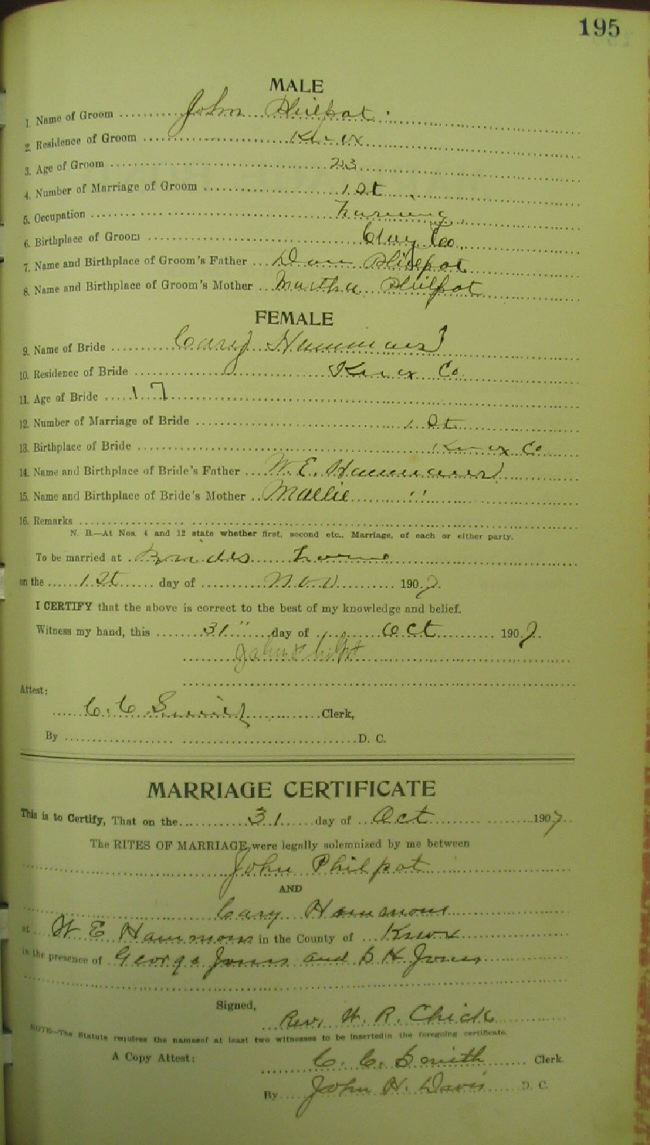 195
MALE
1. Name of Groom John Philpot
2. Residence of Groom Knox
3. Age of Groom 23
4. Number of Marriage of Groom 1 St
5. Occupation Farming
6. Birthplace of Groom Clay Co
7. Name and Birthplace of Groom's Father Dan Philpot
8. Name and Birthplace of Groom's Mother Martha Philpot
FEMALE
9. Name of Bride Cary Hammons
10. Residence of Bride Knox Co
11. Age of Bride 17
12. Number of Marriage of Bride 1 St
13. Birthplace of Bride Knox Co
14. Name and Birthplace of Bride's Father W. E. Hammons
15. Name and Birthplace of Bride's Mother Mallie "
16. Remarks
N. B.—At Nos. 4 and 12 state whether first, second etc., Marriage, of each or either party.
To be married at Brides home
on the 1 St day of Nov 1907.
I CERTIFY that the above is correct to the best of my knowledge and belief.
Witness my hand, this 31" day of Oct 1907.
John Philpot
Attest:
C. C. Smith Clerk,
By D. C.
MARRIAGE CERTIFICATE
This is to Certify, That on the 31 day of Oct 1907
The RITES OF MARRIAGE, were legally solemnized by me between
John Philpot
AND
Cary Hammons
at W E Hammons in the County of Knox
in the presence of George Jones and B H Jones
Signed,
Rev. W. R. Chick
NOTE—The Statute requires the names of at least two witnesses to be inserted in the foregoing certificate.
A Copy Attest: C. C. Smith Clerk.
By John H. Davis D. C.